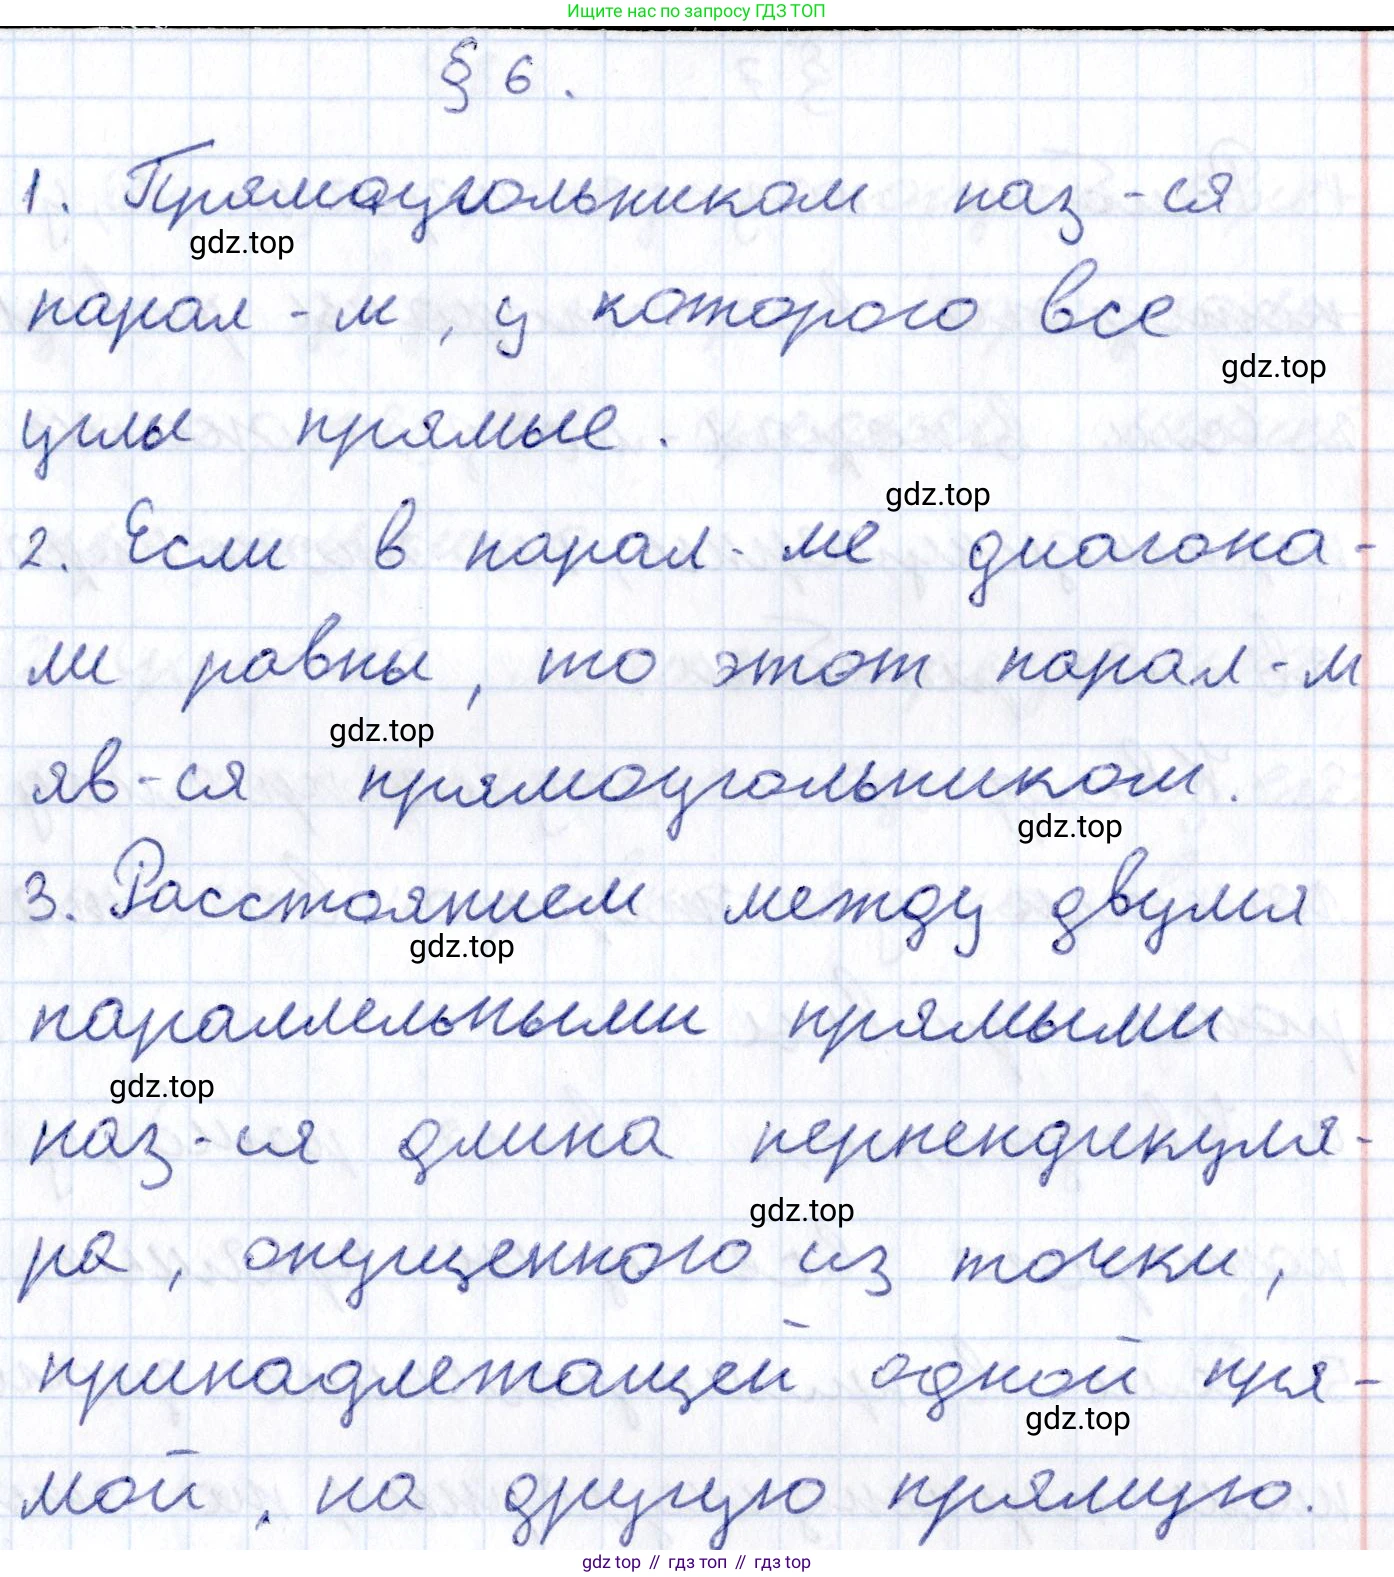 Ищите нас по запросу ГДЗ ТОП
§ 6.
1. Прямоугольником наз-ся
gdz.top
парал-м, у которого все
gdz.top
углы прямые.
gdz.top
2. Если в парал-ме диагона-
ли равны, то этот парал-м
gdz.top
яв-ся прямоугольником.
gdz.top
3. Расстоянием между двумя
gdz.top
параллельными прямыми
gdz.top
наз-ся длина перпендикуля-
gdz.top
ра, опущенного из точки,
принадлежащей одной пря-
gdz.top
мой, на другую прямую.
gdz top // гдз топ // гдз top